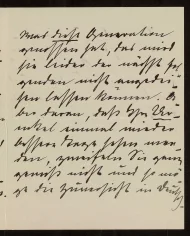 was diese Generation
genossen hat, das wird
sie leider der nächst fol-
genden nicht angedei-
hen lassen können. A-
ber daran, daß Ihre Ur-
enkel einmal wieder
bessere Tage sehen wer-
den, zweifeln Sie ganz
gewiß nicht und so mö-
ge die Zuversicht in